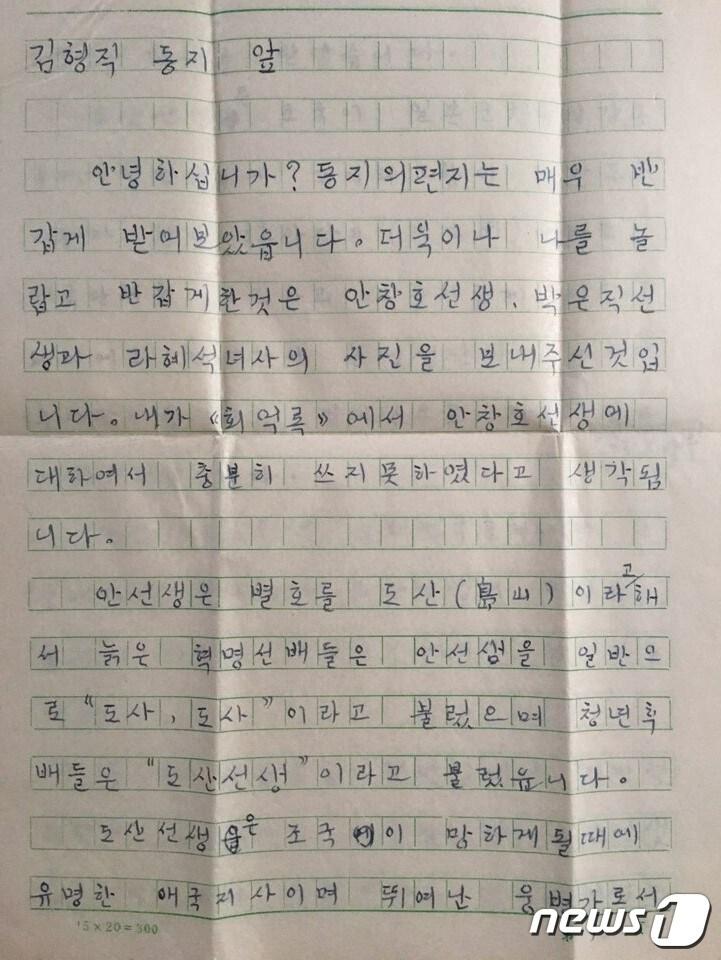 김형직 동지 앞
안녕하십니가? 동지의편지는 매우 반
갑게 받어보았읍니다. 더욱이나 나를 놀
랍고 반갑게한것은 안창호선생, 박은직선
생과 라혜석녀사의 사진을 보내주신것입
니다. 내가 《회억록》에서 안창호선생에
대하여서 충분히 쓰지못하였다고 생각됩
니다.
안선생은 별호를 도산(島山)이라고해
서 늙은 혁명선배들은 안선생을 일반으
로 "도사, 도사"이라고 불렀으며 청년획
배들은 "도산선생"이라고 불렀읍니다.
도산선생은 조국이 망하게될때에
유명한 애국지사이며 뛰여난 웅변가로서
15×20=300
news1